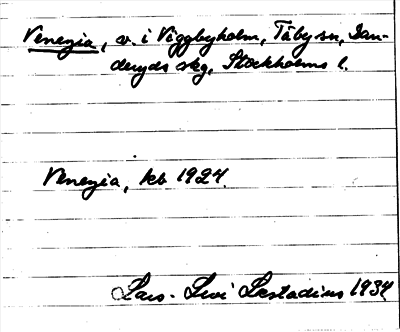 Venezia, v. i Viggbyholm, Täby sn, Dan-
deryds skg, Stockholms l.
Venezia, kb 1924.
Lars-Levi Læstadius 1934